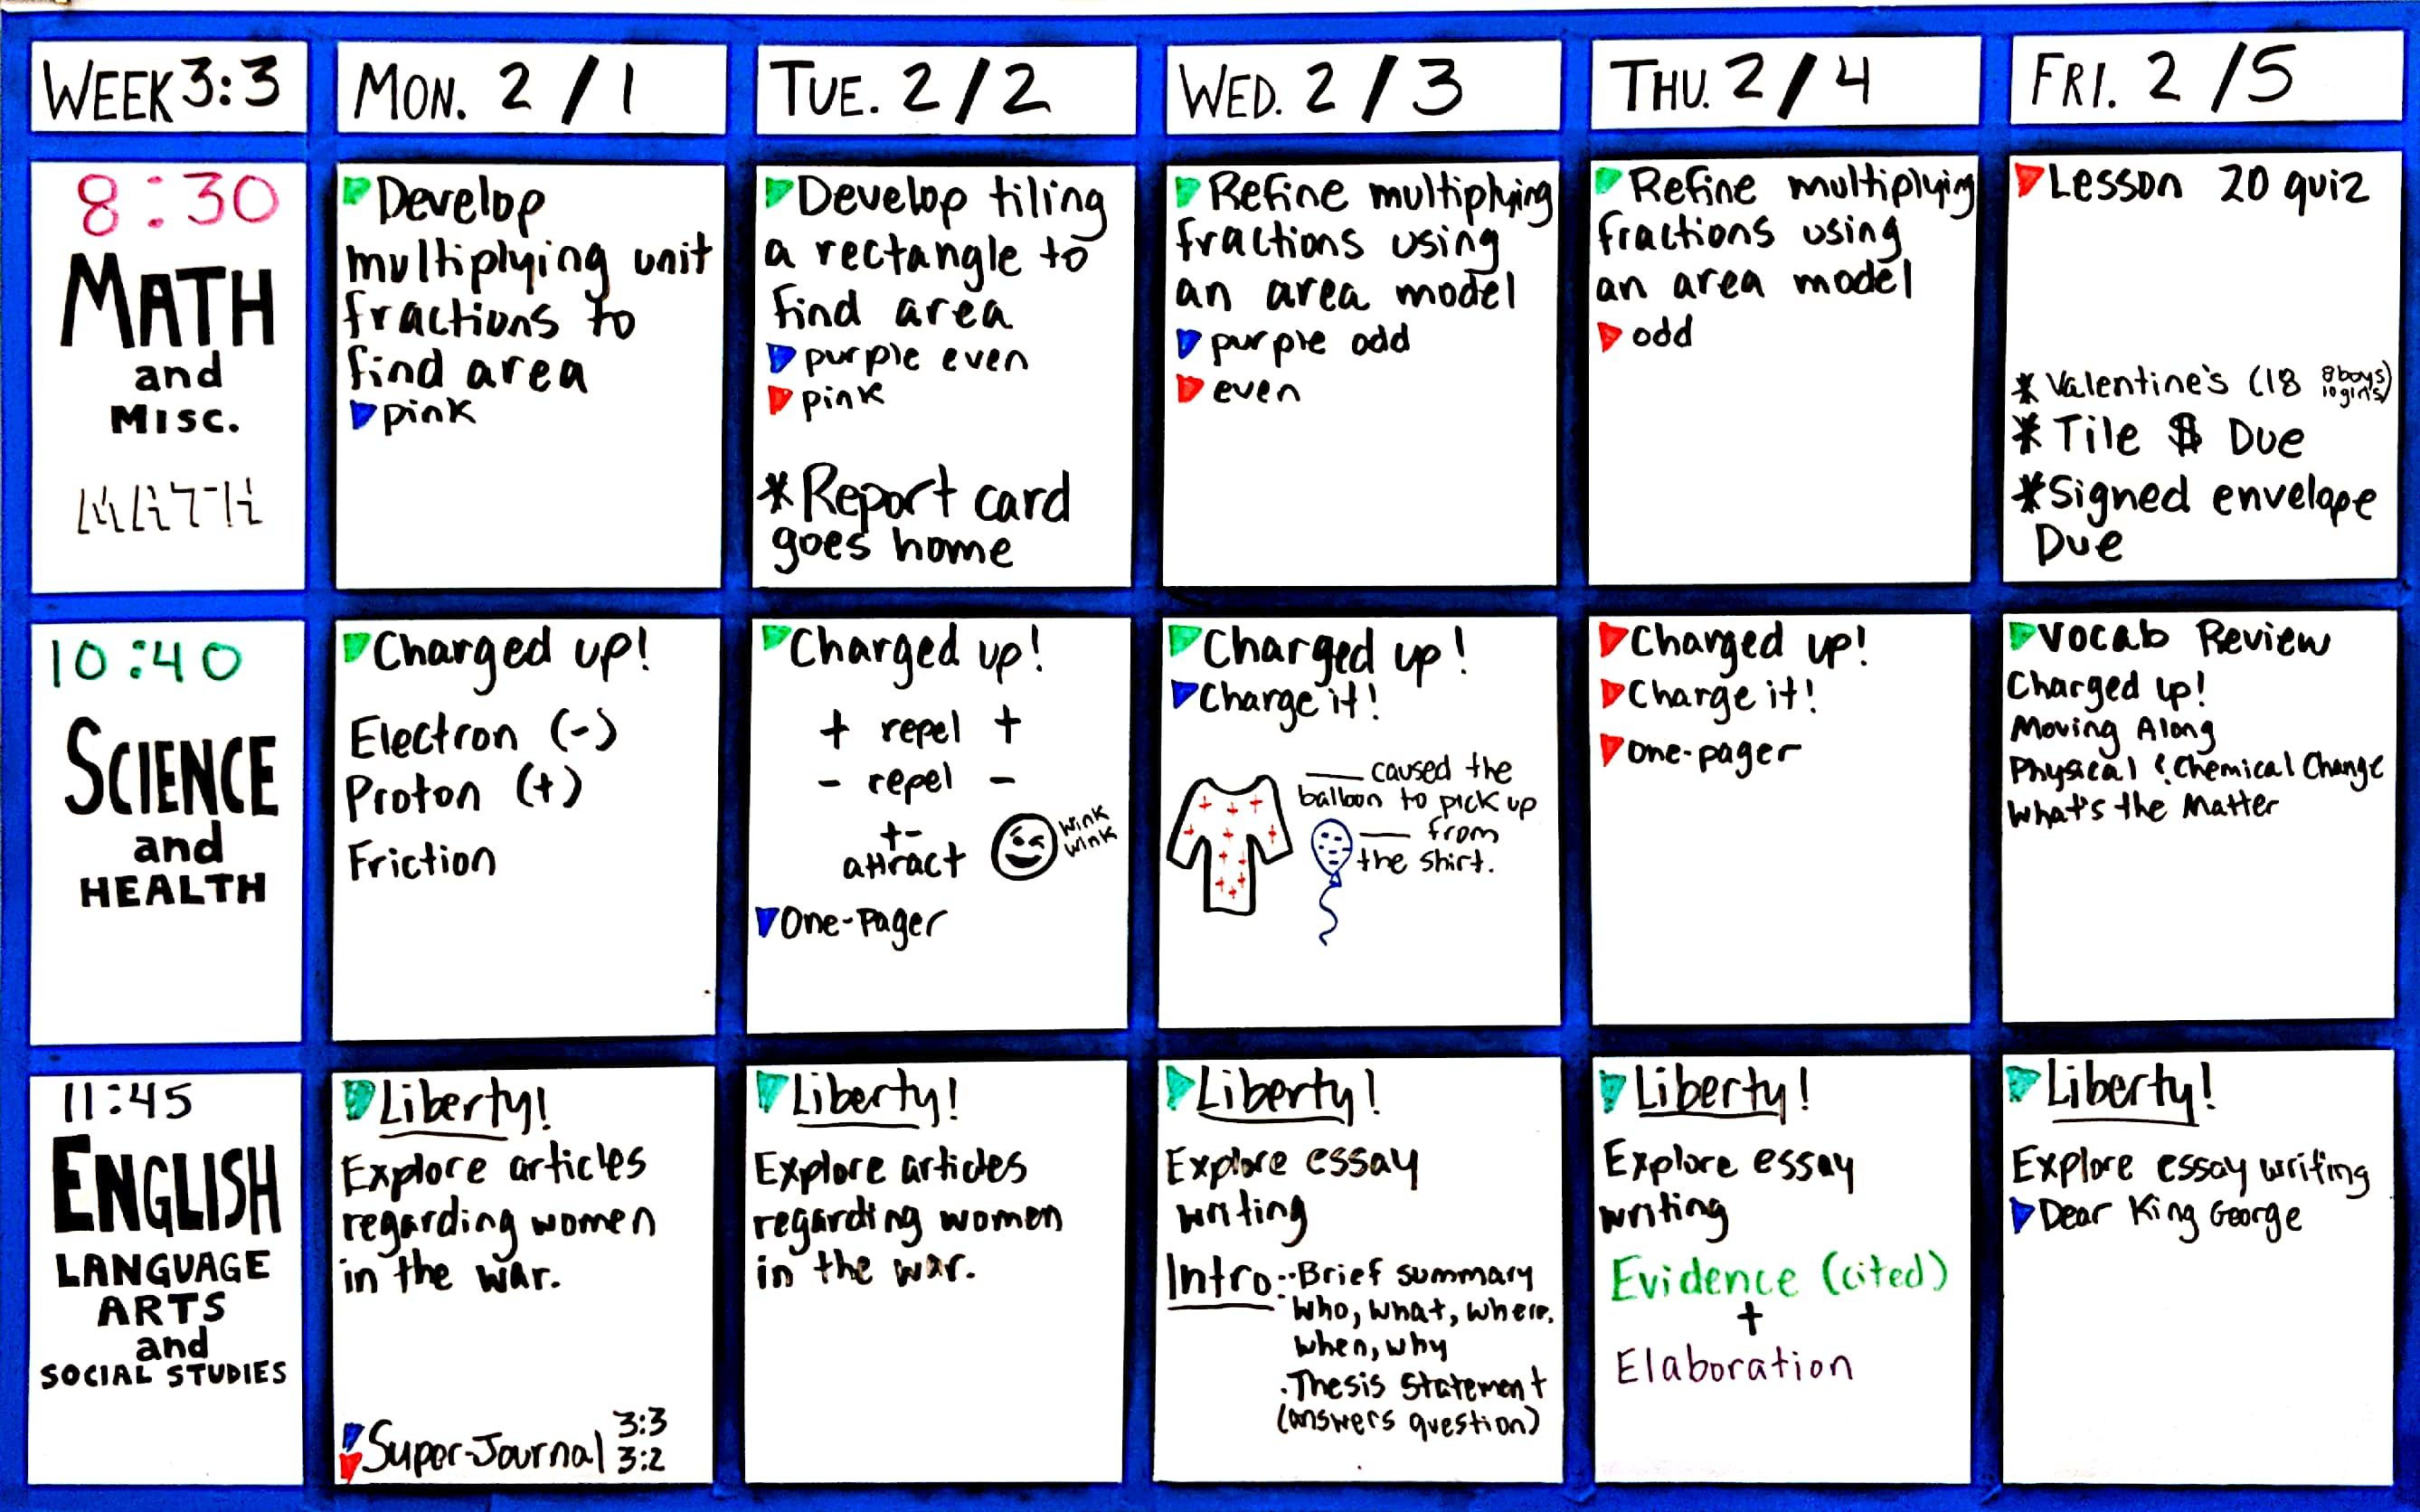 WEEK 3:3
MON. 2/1
TUE. 2/2
WED. 2/3
THU. 2/4
FRI. 2/5
8:30
MATH
and
MISC.
MATH
Develop
multiplying unit
fractions to
find area
pink
Develop tiling
a rectangle to
find area
purple even
pink
*Report card
goes home
Refine multiplying
fractions using
an area model
purple odd
even
Refine multiplying
fractions using
an area model
odd
Lesson 20 quiz
* Valentine's (18 8 boys
10 girls)
* Tile $ Due
*Signed envelope
Due
10:40
SCIENCE
and
HEALTH
Charged up!
Electron (-)
Proton (+)
Friction
Charged up!
+ repel +
- repel -
+-
attract
wink
wink
One-Pager
Charged up!
Charge it!
____ caused the
balloon to pick up
____ from
the shirt.
Charged up!
Charge it!
One-pager
Vocab Review
Charged up!
Moving Along
Physical & Chemical Change
What's the Matter
11:45
ENGLISH
LANGUAGE
ARTS
and
SOCIAL STUDIES
Liberty!
Explore articles
regarding women
in the war.
Super-Journal 3:3
3:2
Liberty!
Explore articles
regarding women
in the war.
Liberty!
Explore essay
writing
Intro: ·Brief summary
who, what, where,
when, why
·Thesis Statement
(answers question)
Liberty!
Explore essay
writing
Evidence (cited)
+
Elaboration
Liberty!
Explore essay writing
Dear King George